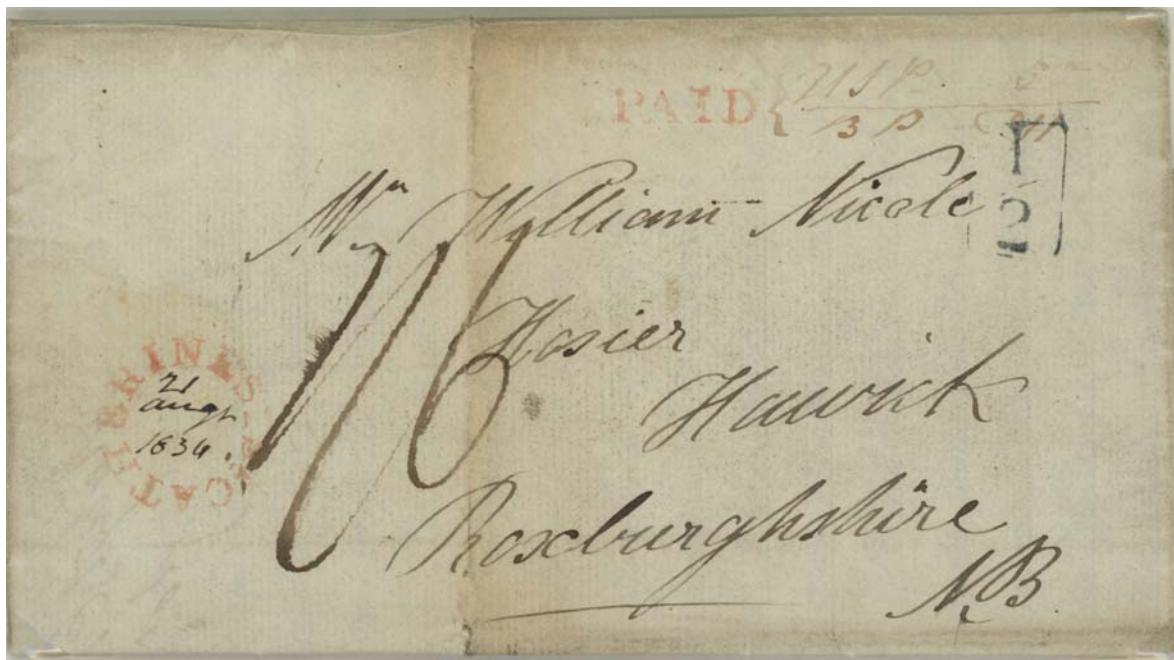 PAID
1
2
Mr William Nicole
Hosier
Hawick
Roxburghshire
N.B.
CATHERINES
21
augt
1834.